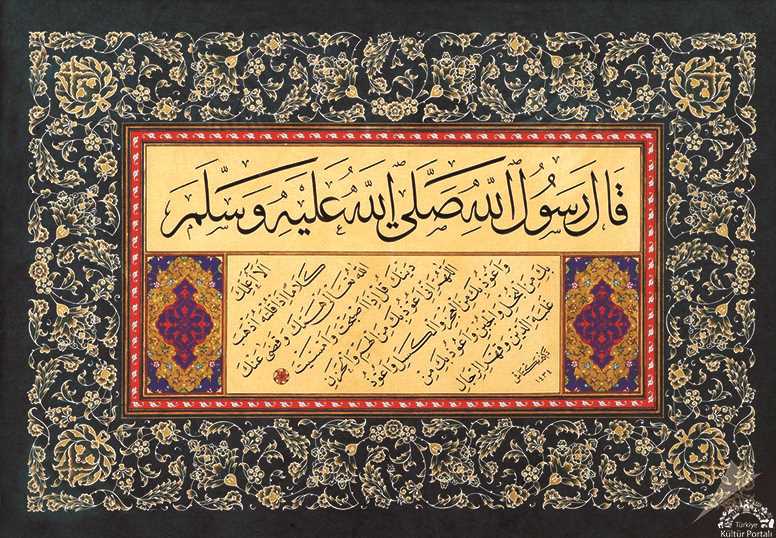 قَالَ رَسُولُ اللهِ صَلَّى اللهُ عَلَيْهِ وَسَلَّمَ
الا اعلمك
كلاما اذا قلته اذهب
الله تعالى همك وقضى عنك
دينك قل اذا اصبحت واذا امسيت
اللهم اني اعوذ بك من الهم والحزن
واعوذ بك من العجز والكسل واعوذ
بك من البخل والجبن واعوذ بك من
غلبة الدين وقهر الرجال
Türkiye
Kültür Portalı